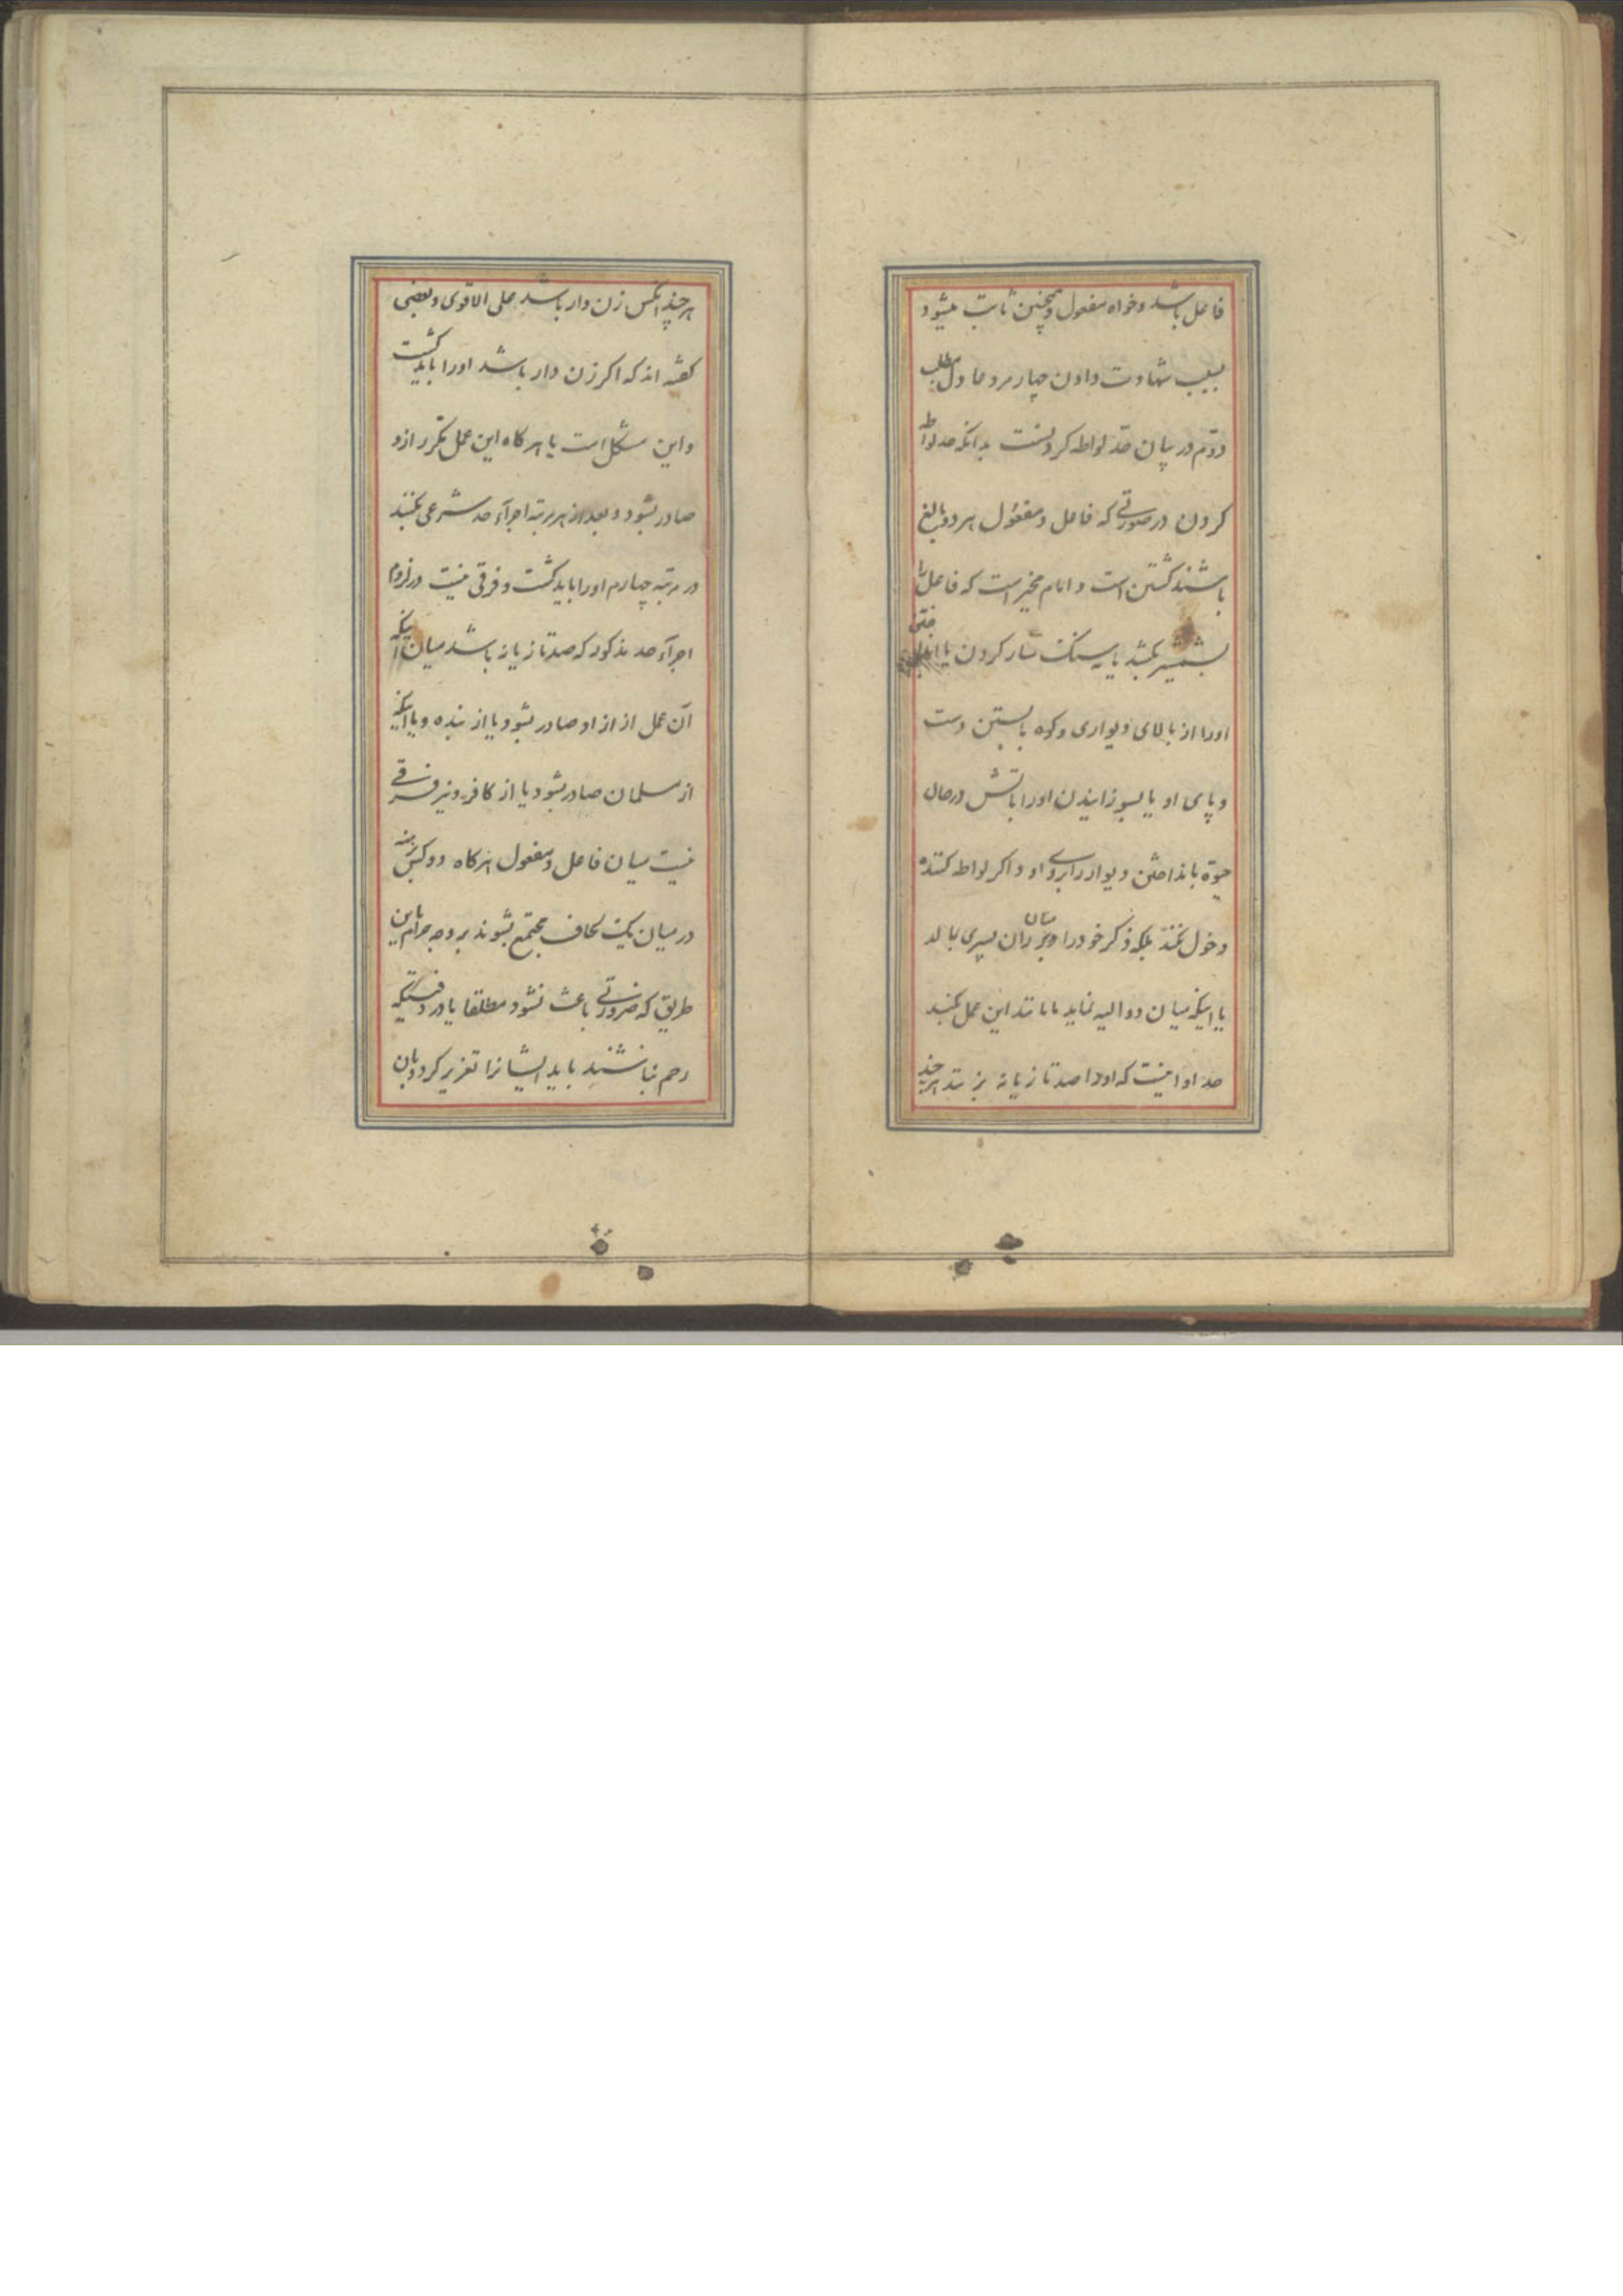 فاعل باشد و خواه مفعول و همچنین ثابت میشود
بسبب شهادت دادن چهار مرد عادل مطلب
دویم در بیان حد لواطه کردنست بدانکه حد لواطه
کردن در صورتی که فاعل و مفعول هر دو بالغ
باشند کشتن است و امام مخیر است که فاعل را
بشمشیر بکشد یا به سنگ سار کردن یا انداختن
اورا از بالای دیواری و کوه با بستن دست
و پای او یا بسوزانیدن اورا باتش در حال
حیوة یا بانداختن دیوار را بر روی او و اگر لواطه کننده
دخول نکند بلکه ذکر خود را در میان ران پسری بمالد
یا اینکه میان دو الیه نماید یا مانند این عمل بکند
حد او اینست که اورا صد تازیانه بزنند هر چند
هر چند آنکس زن دار باشد علی الاقوی و بعضی
گفته اند که اکر زن دار باشد اورا باید کشت
و این مشکل است یا هر کاه این عمل مکرر ازو
صادر بشود و بعد از هر مرتبه اجرآء حد شرعی بکنند
در مرتبه چهارم اورا باید کشت و فرقی نیست در لزوم
اجرآء حد مذکور که صد تازیانه باشد میان اینکه
آن عمل از ازاد صادر بشود یا از بنده و یا اینکه
از مسلمان صادر بشود یا از کافر و نیز فرقی
نیست میان فاعل و مفعول هر کاه دو کس برهنه
در میان یک لحاف مجتمع بشوند بر وجه حرام باین
طریق که ضرورتی باعث نشود مطلقا یا در وقتیکه
رحم نباشند باید ایشانرا تعزیر کرد و بان